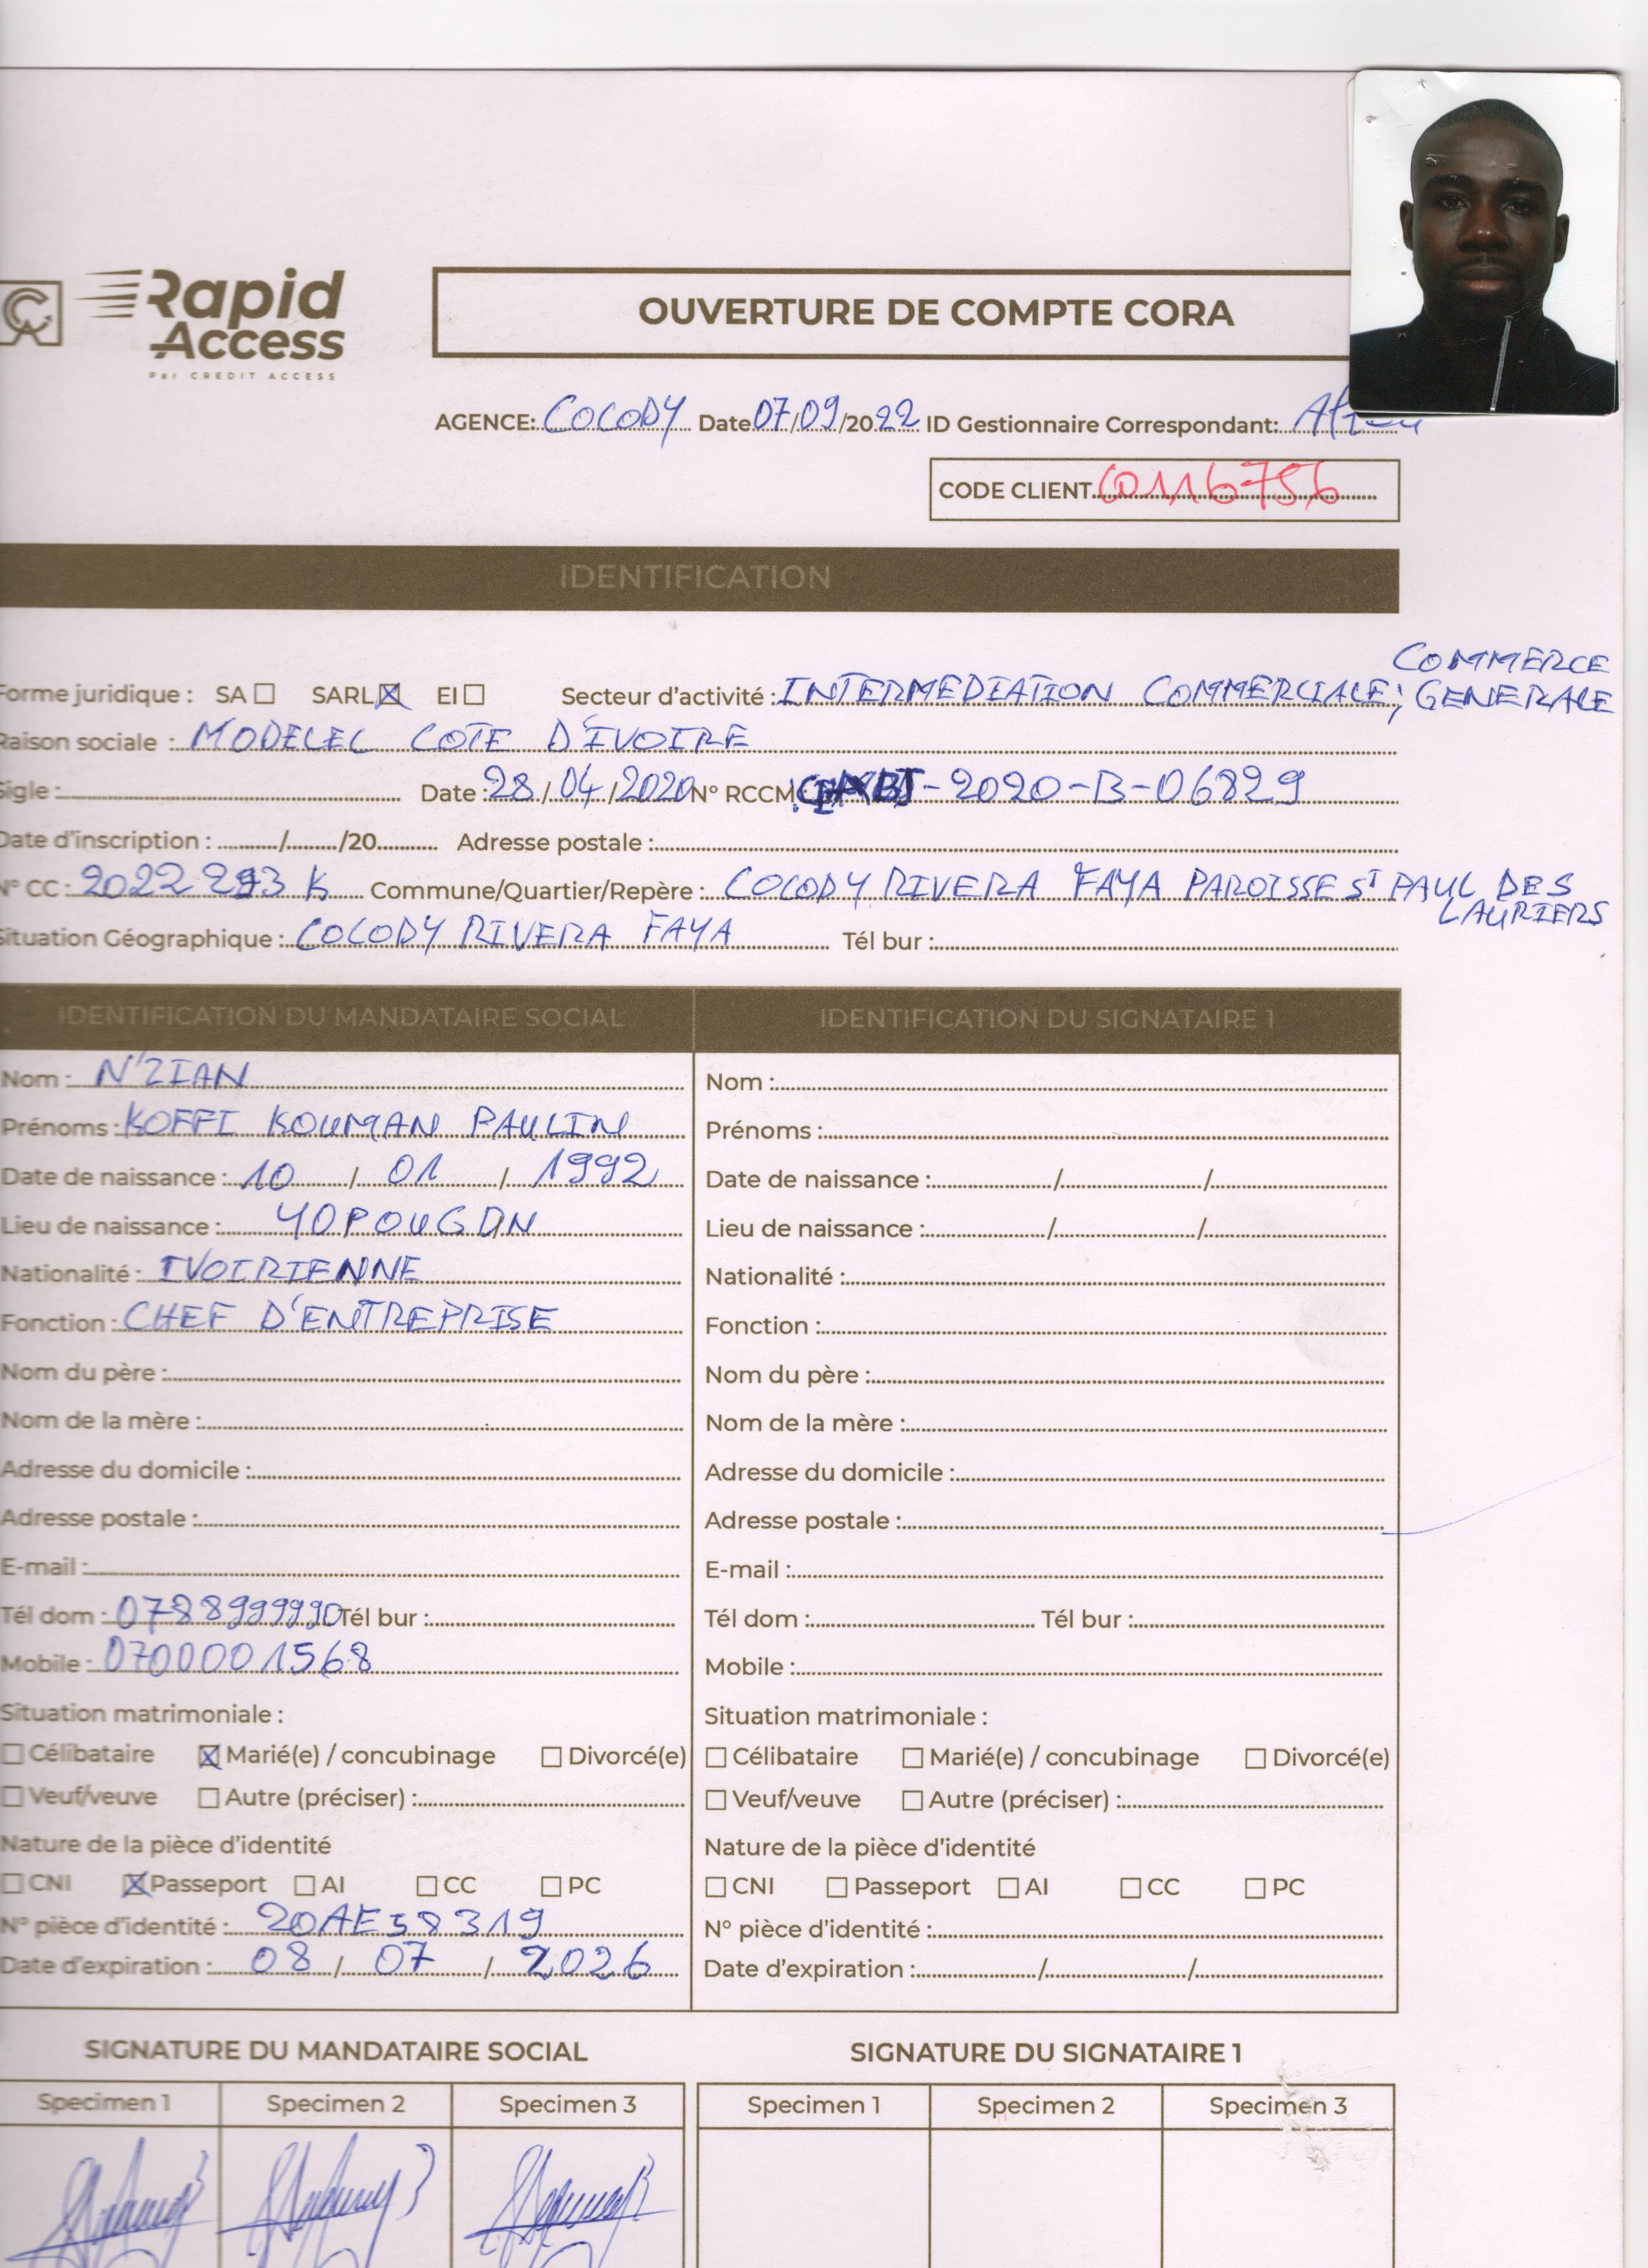 Rapid
Access
Par CREDIT ACCESS
OUVERTURE DE COMPTE CORA
AGENCE: COCODY Date 07/09/2022 ID Gestionnaire Correspondant:
CODE CLIENT
IDENTIFICATION
COMMERCE
Forme juridique : SA SARL EI Secteur d'activité : INTERMEDIATION COMMERCIALE; GENERALE
Raison sociale : MODELEC COTE D'IVOIRE
Sigle : Date : 28/04/2020 N° RCCM -2020-B-06829
Date d'inscription : / /20 Adresse postale :
N° CC : K Commune/Quartier/Repère : COCODY RIVERA FAYA PAROISSE ST PAUL DES
LAURIERS
Situation Géographique : COCODY RIVERA FAYA Tél bur :
IDENTIFICATION DU MANDATAIRE SOCIAL
Nom : N'ZIAN
Prénoms : KOFFI KOUMAN PAULIN
Date de naissance : 10 / 01 / 1992
Lieu de naissance : YOPOUGON
Nationalité : IVOIRIENNE
Fonction : CHEF D'ENTREPRISE
Nom du père :
Nom de la mère :
Adresse du domicile :
Adresse postale :
E-mail :
Tél dom : 0788999990 Tél bur :
Mobile : 0700001568
Situation matrimoniale :
Célibataire Marié(e) / concubinage Divorcé(e)
Veuf/veuve Autre (préciser) :
Nature de la pièce d'identité
CNI Passeport AI CC PC
N° pièce d'identité : 20AE58319
Date d'expiration : 08 / 07 / 2026
SIGNATURE DU MANDATAIRE SOCIAL
Specimen 1 Specimen 2 Specimen 3
IDENTIFICATION DU SIGNATAIRE 1
Nom :
Prénoms :
Date de naissance : / /
Lieu de naissance : / /
Nationalité :
Fonction :
Nom du père :
Nom de la mère :
Adresse du domicile :
Adresse postale :
E-mail :
Tél dom : Tél bur :
Mobile :
Situation matrimoniale :
Célibataire Marié(e) / concubinage Divorcé(e)
Veuf/veuve Autre (préciser) :
Nature de la pièce d'identité
CNI Passeport AI CC PC
N° pièce d'identité :
Date d'expiration : / /
SIGNATURE DU SIGNATAIRE 1
Specimen 1 Specimen 2 Specimen 3